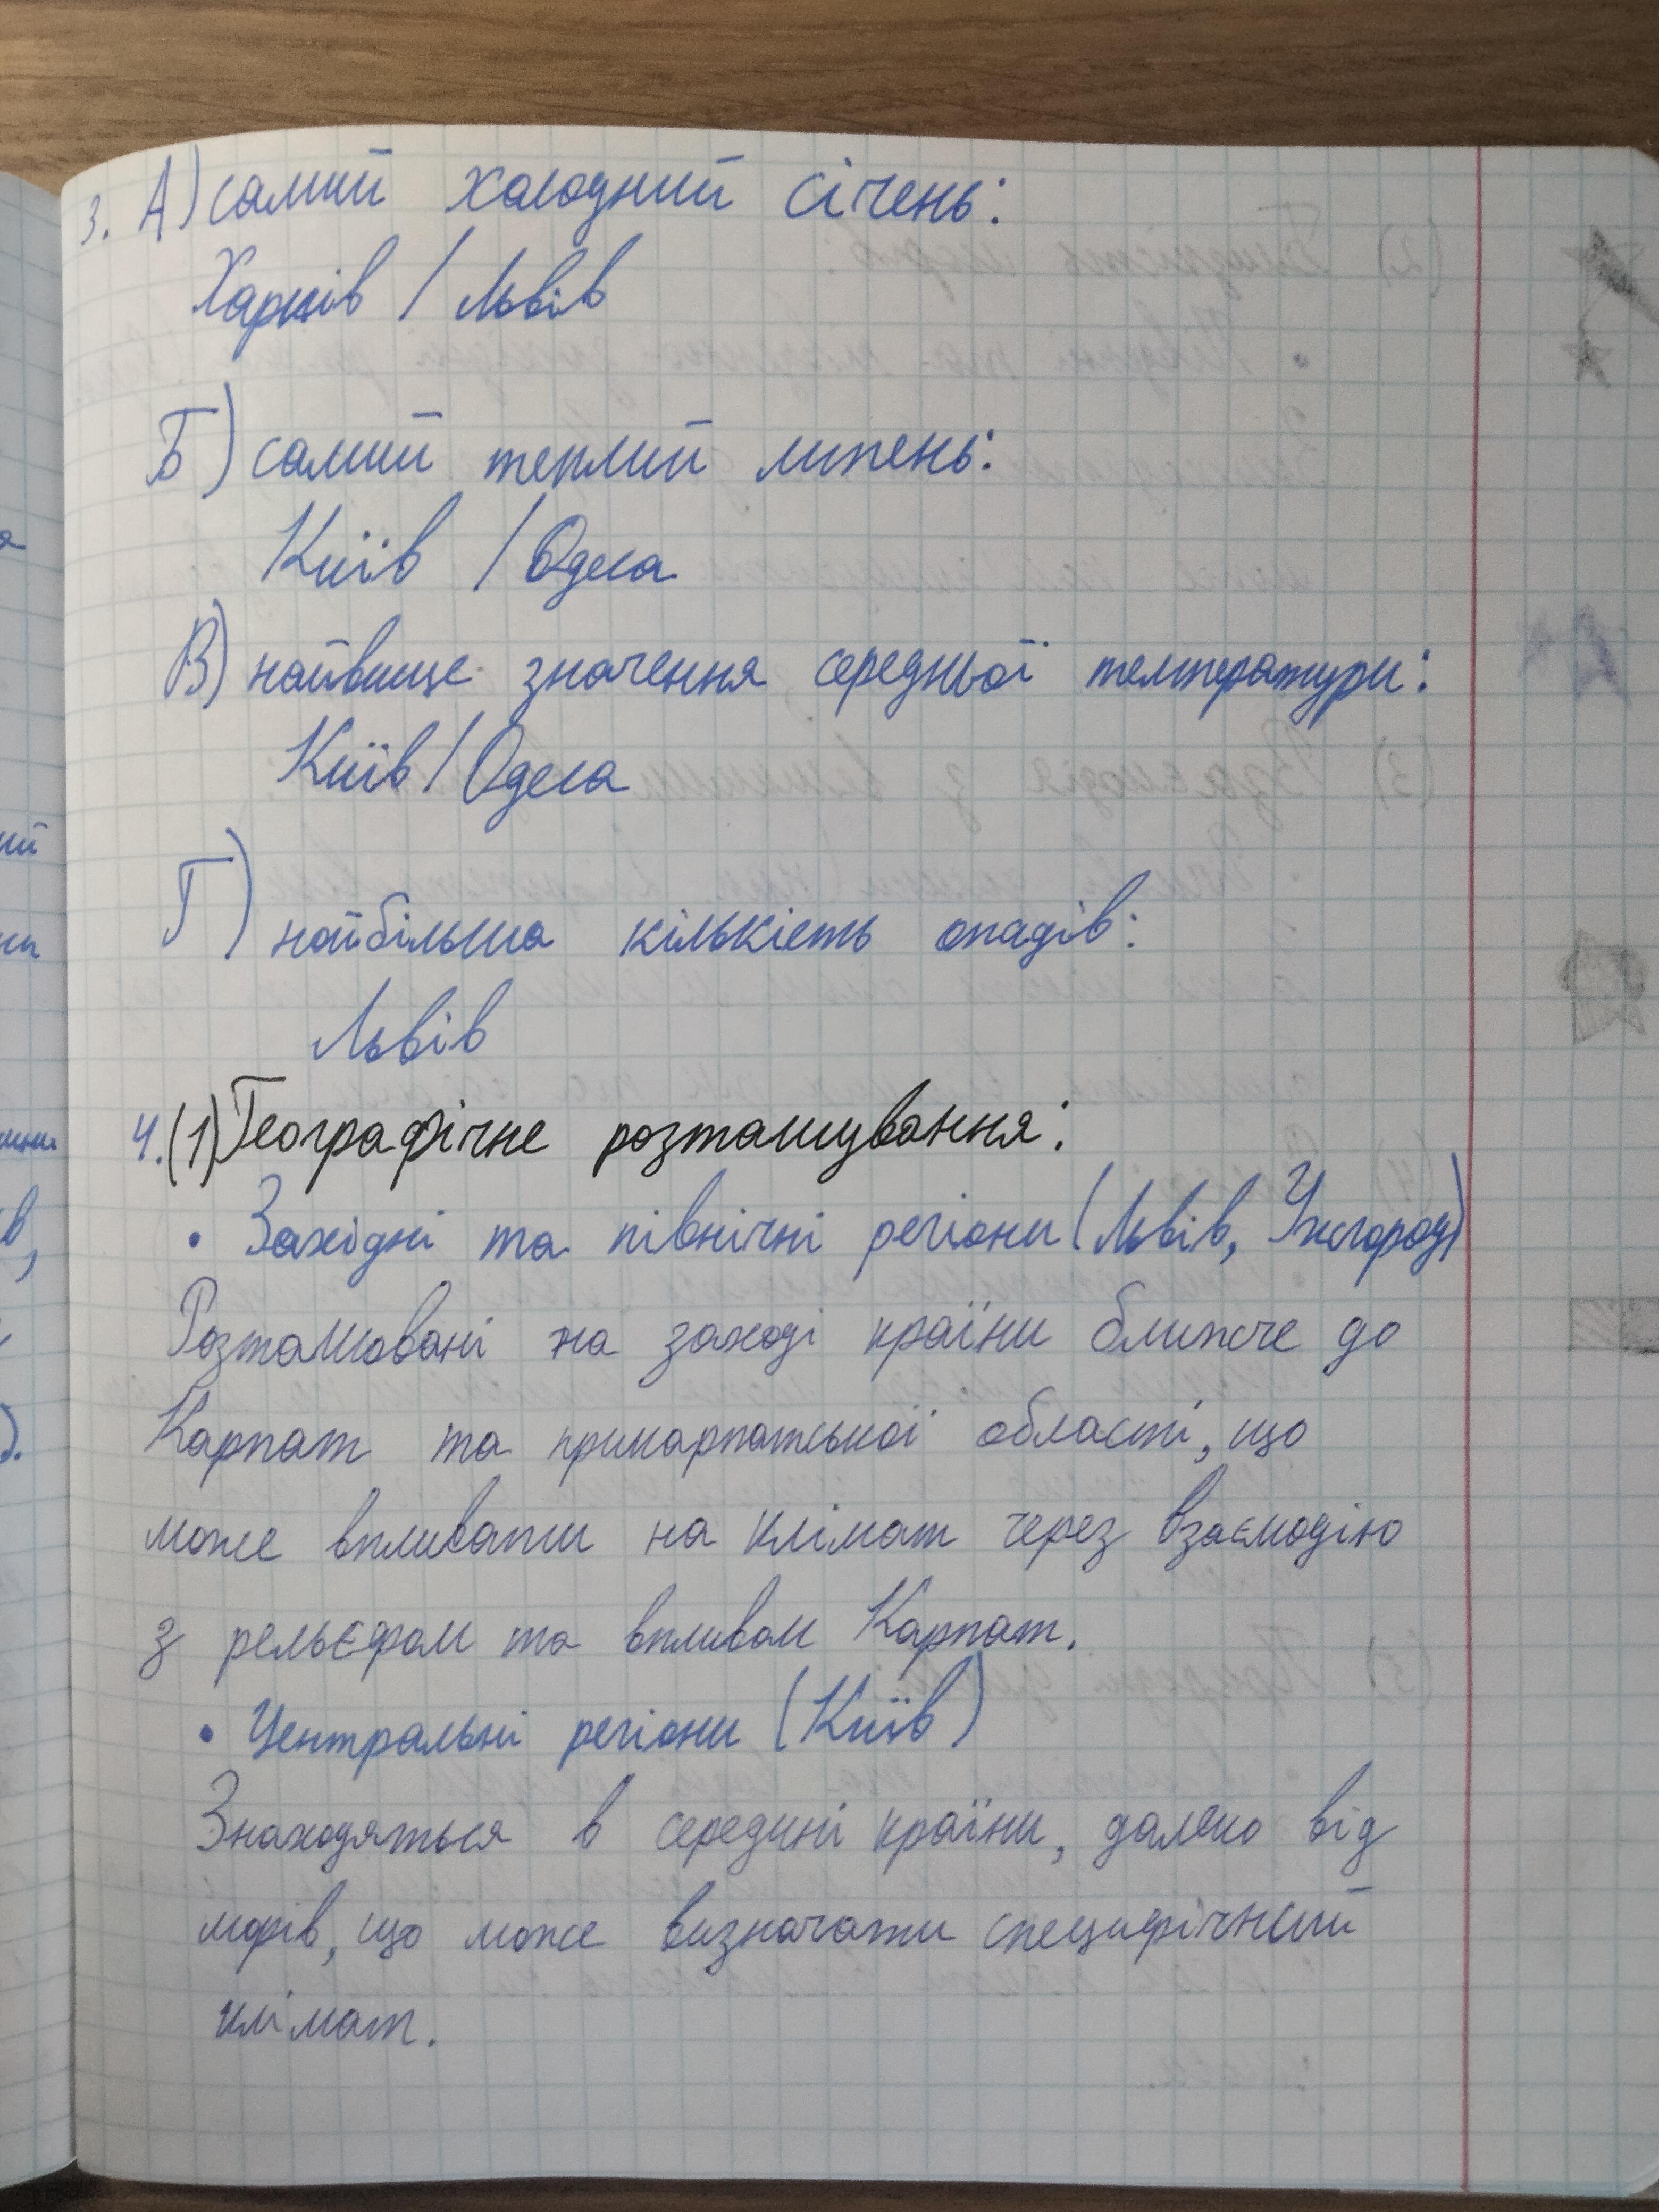 3. А) самий холодний січень:
Харків / Львів
Б) самий теплий липень:
Київ / Одеса
В) найвище значення середньої температури:
Київ / Одеса
Г) найбільша кількість опадів:
Львів
4. (1) Географічне розташування:
• Західні та північні регіони (Львів, Ужгород)
Розташовані на заході країни ближче до
Карпат та прикарпатської області, що
може впливати на клімат через взаємодію
з рельєфом та впливом Карпат.
• Центральні регіони (Київ)
Знаходяться в середині країни, далеко від
морів, що може визначати специфічний
клімат.